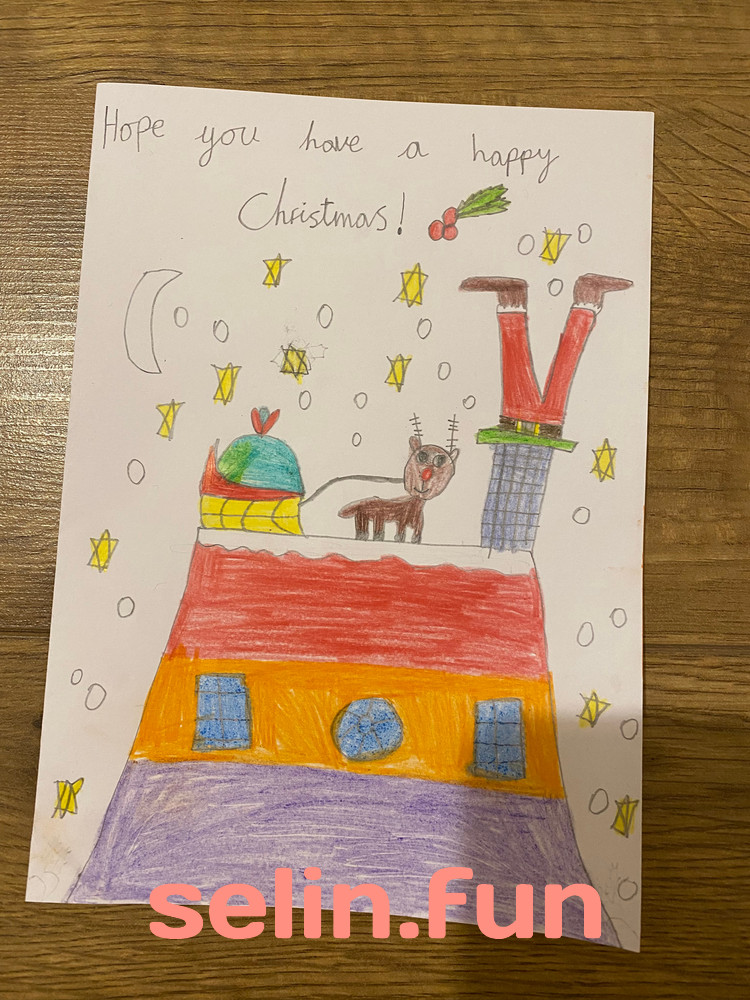 Hope you have a happy
Christmas!
selin.fun